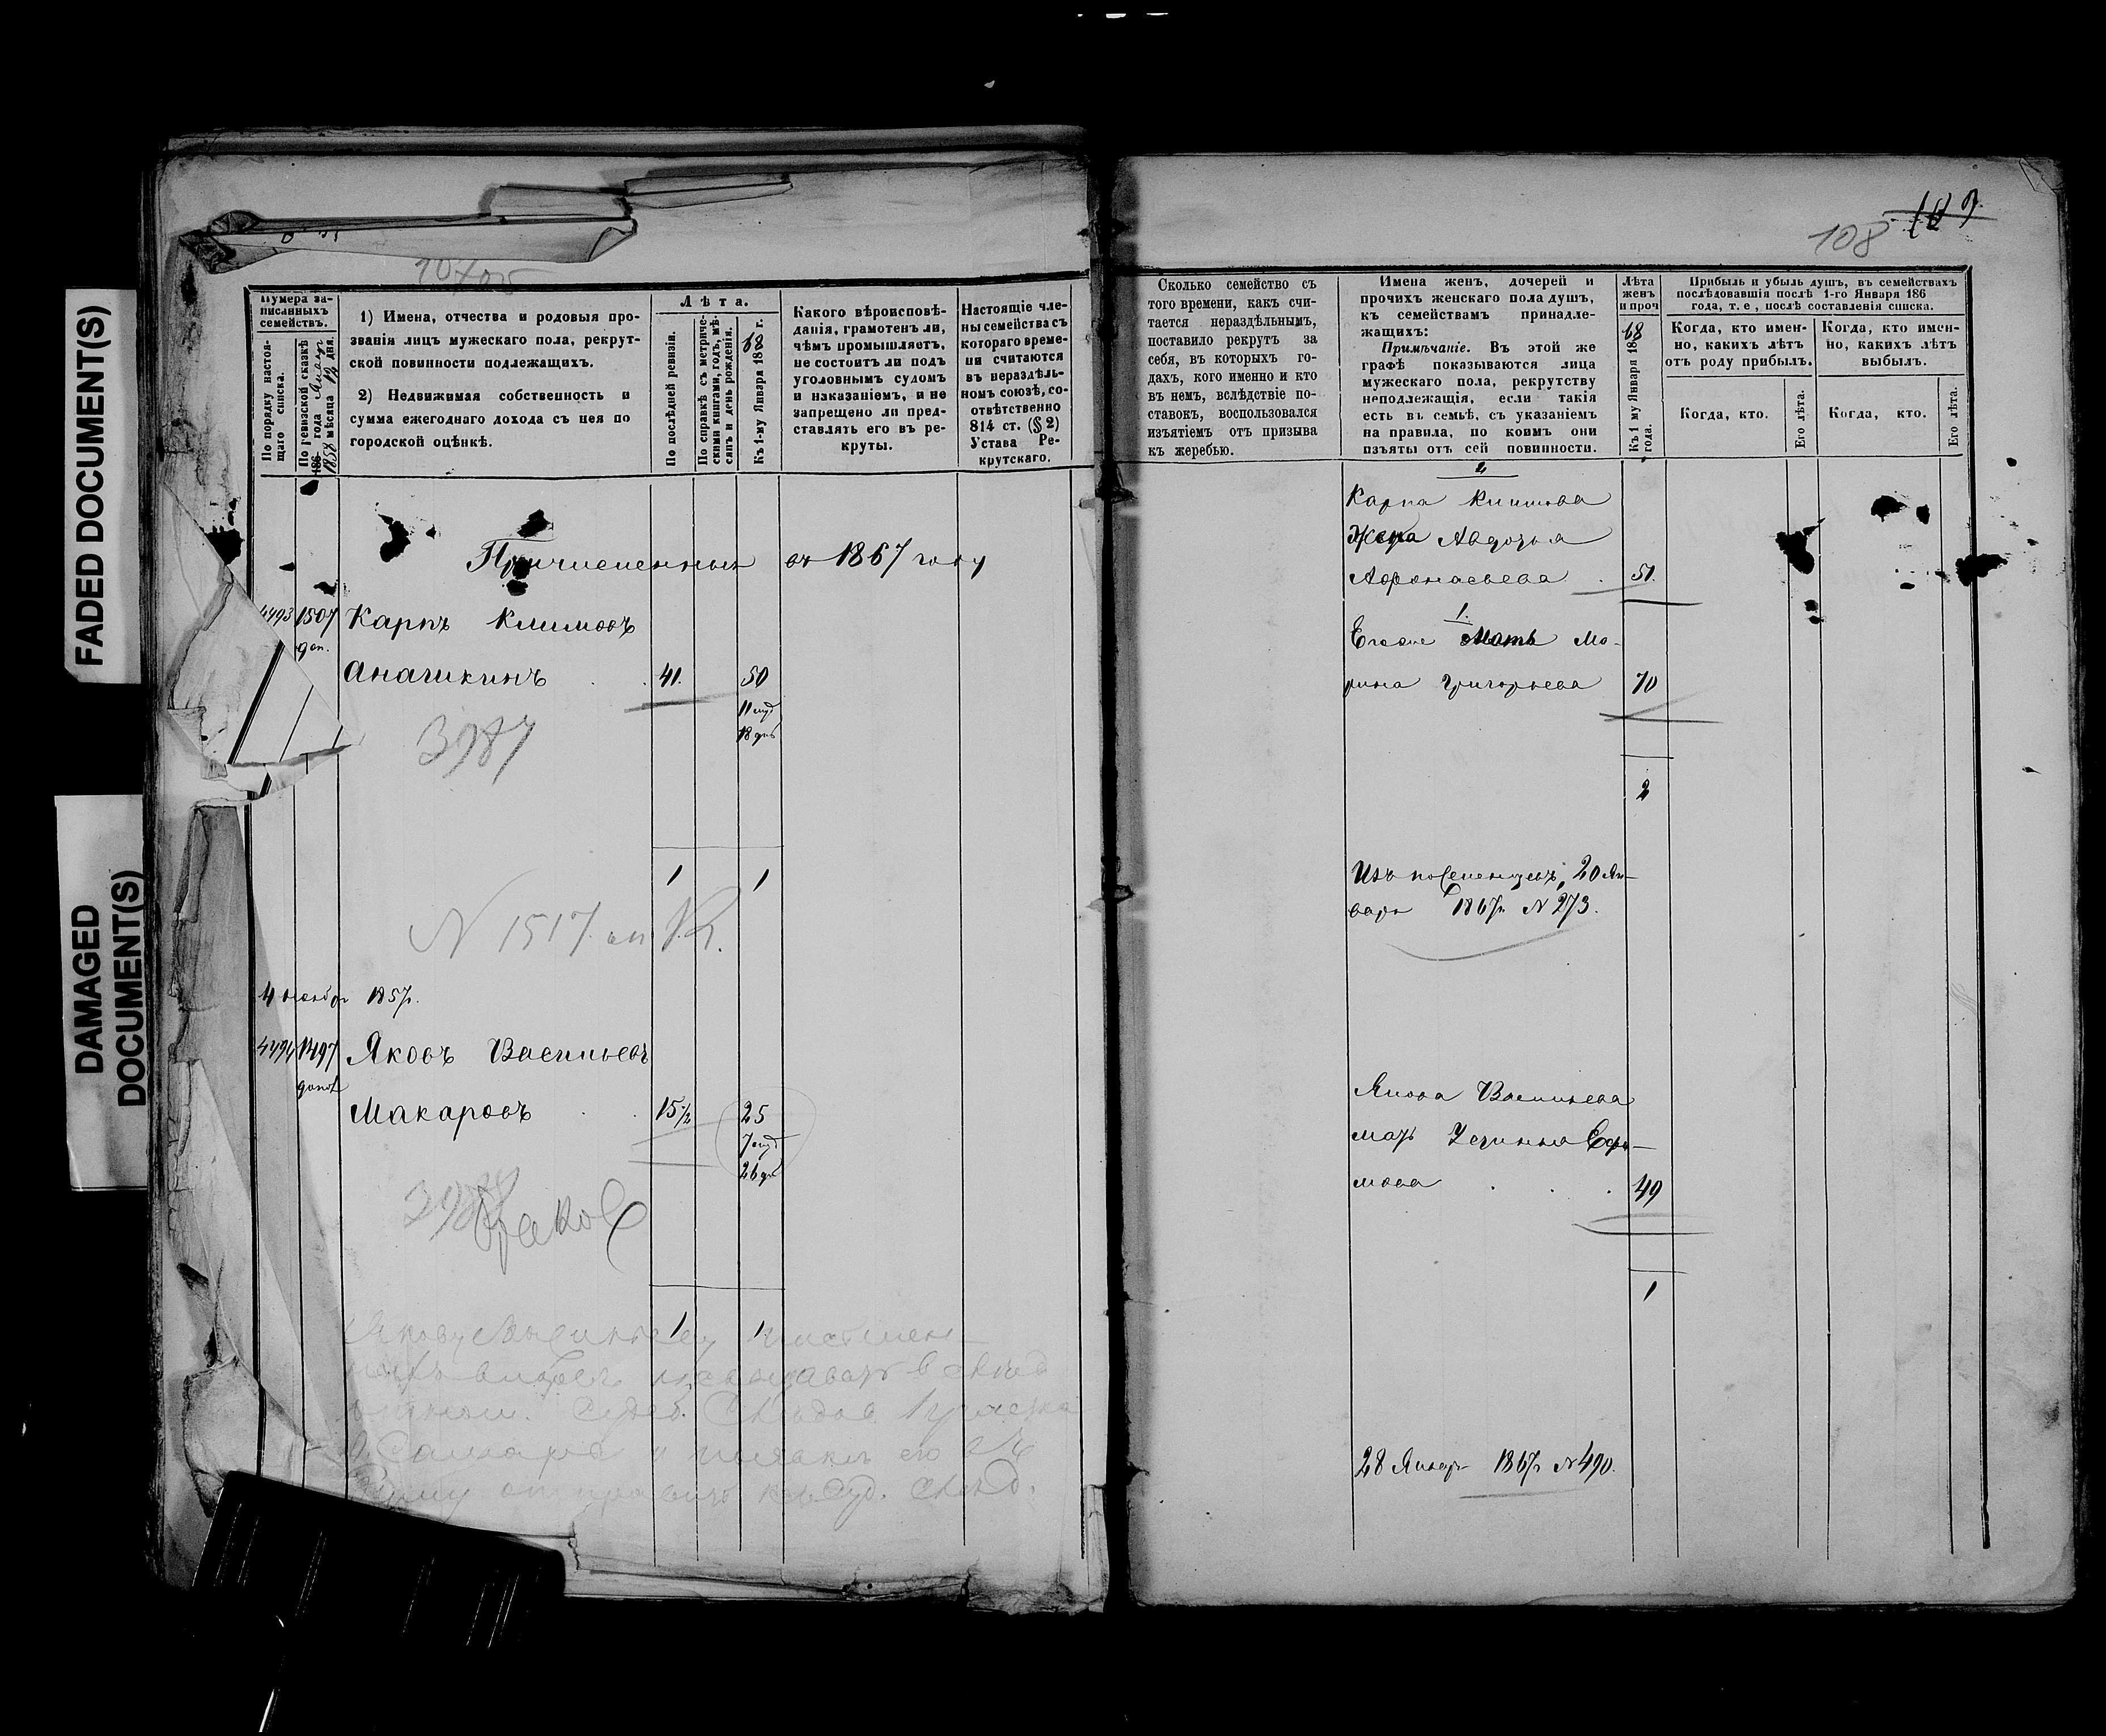 FADED DOCUMENT(S)
DAMAGED
DOCUMENT(S)
107об
Нумера за-
писанныхъ
семействъ.
По порядку настоя-
щаго списка.
По ревизской сказкѣ
186 года
1858 мѣсяца 12 дня.
1) Имена, отчества и родовыя про-
званія лицъ мужескаго пола, рекрут-
ской повинности подлежащихъ.
2) Недвижимая собственность и
сумма ежегоднаго дохода съ нея по
городской оцѣнкѣ.
Лѣта.
По послѣдней ревизіи.
По справкѣ съ метриче-
скими книгами, годъ, мѣ-
сяцъ и день рожденія.
Къ 1-му Января 1868 г.
Какого вѣроисповѣ-
данія, грамотенъ ли,
чѣмъ промышляетъ,
не состоитъ ли подъ
уголовнымъ судомъ
и наказаніемъ, и не
запрещено ли пред-
ставлять его въ ре-
круты.
Настоящіе чле-
ны семейства съ
котораго време-
ни считаются
въ нераздѣль-
номъ союзѣ, со-
отвѣтственно
814 ст. (§ 2)
Устава Ре-
крутскаго.
Причисленныхъ въ 1867 году
4493 1507 Карпъ Климовъ
доп.
Аначикинъ 41. 50
11 мѣ
18 дне
3987
1 1
N 1517
4 1857.
4494 1497 Яковъ Васильевъ
допол
Макаровъ 15½ 25
7 мѣ
26 дн
3988
Яковъ
1 1
108 109
Сколько семейство съ
того времени, какъ счи-
тается нераздѣльнымъ,
поставило рекрутъ за
себя, въ которыхъ го-
дахъ, кого именно и кто
въ немъ, вслѣдствіе по-
ставокъ, воспользовался
изъятіемъ отъ призыва
къ жеребью.
Имена женъ, дочерей и
прочихъ женскаго пола душъ,
къ семействамъ принадле-
жащихъ:
Примѣчаніе. Въ этой же
графѣ показываются лица
мужескаго пола, рекрутству
неподлежащія, если такія
есть въ семьѣ, съ указаніемъ
на правила, по коимъ они
изъяты отъ сей повинности.
Лѣта
женъ
и проч
Къ 1 му Января 1868
года.
Прибыль и убыль душъ, въ семействахъ
послѣдовавшія послѣ 1-го Января 186
года, т. е., послѣ составленія списка.
Когда, кто имен-
но, какихъ лѣтъ
отъ роду прибылъ.
Когда, кто имен-
но, какихъ лѣтъ
выбылъ.
Когда, кто.
Его лѣта.
Когда, кто.
Его лѣта.
2
Карпа Климова
Жена Авдотья
Афонасьева 51.
1.
Егоже Мать Ма-
рина Григорьева 70
2
Изъ поселенцевъ, 20 Ян-
варя 1867г. N 273.
Якова Васильева
мать Устинья Ефи-
мова 49
1
28 Января 1867г. N 490.